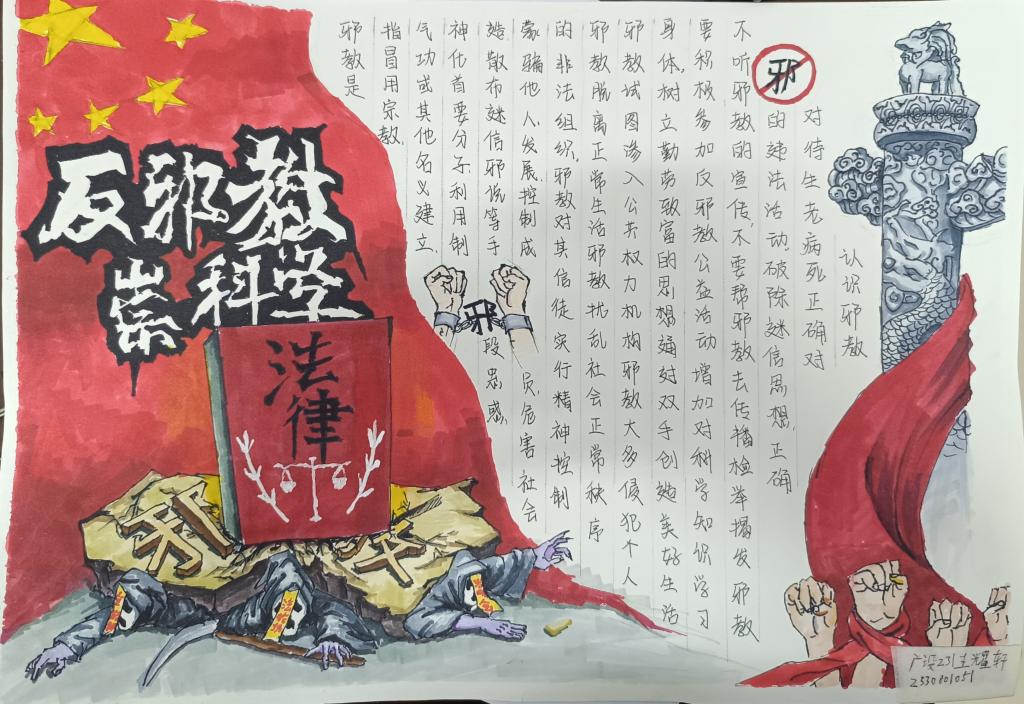 反邪教
崇科学
法律
邪
认识邪教
邪教是
指冒用宗教
气功或其他名义建立
神化首要分子利用制
造散布迷信邪说等手段思惑
蒙骗他人、发展、控制成员危害社会
的非法组织.邪教对其信徒实行精神控制
邪教脱离正常生活邪教扰乱社会正常秩序
邪教试图渗入公共权力机构邪教大多侵犯个人
身体,树立勤劳致富的思想通对双手创造美好生活
要积极参加反邪教公益活动增加对科学知识学习
不听邪教的宣传,不要帮邪教去传播检举揭发邪教
的违法活动.破除迷信思想,正确
对待生老病死正确对
邪
邪
广设231王耀轩
2330801051